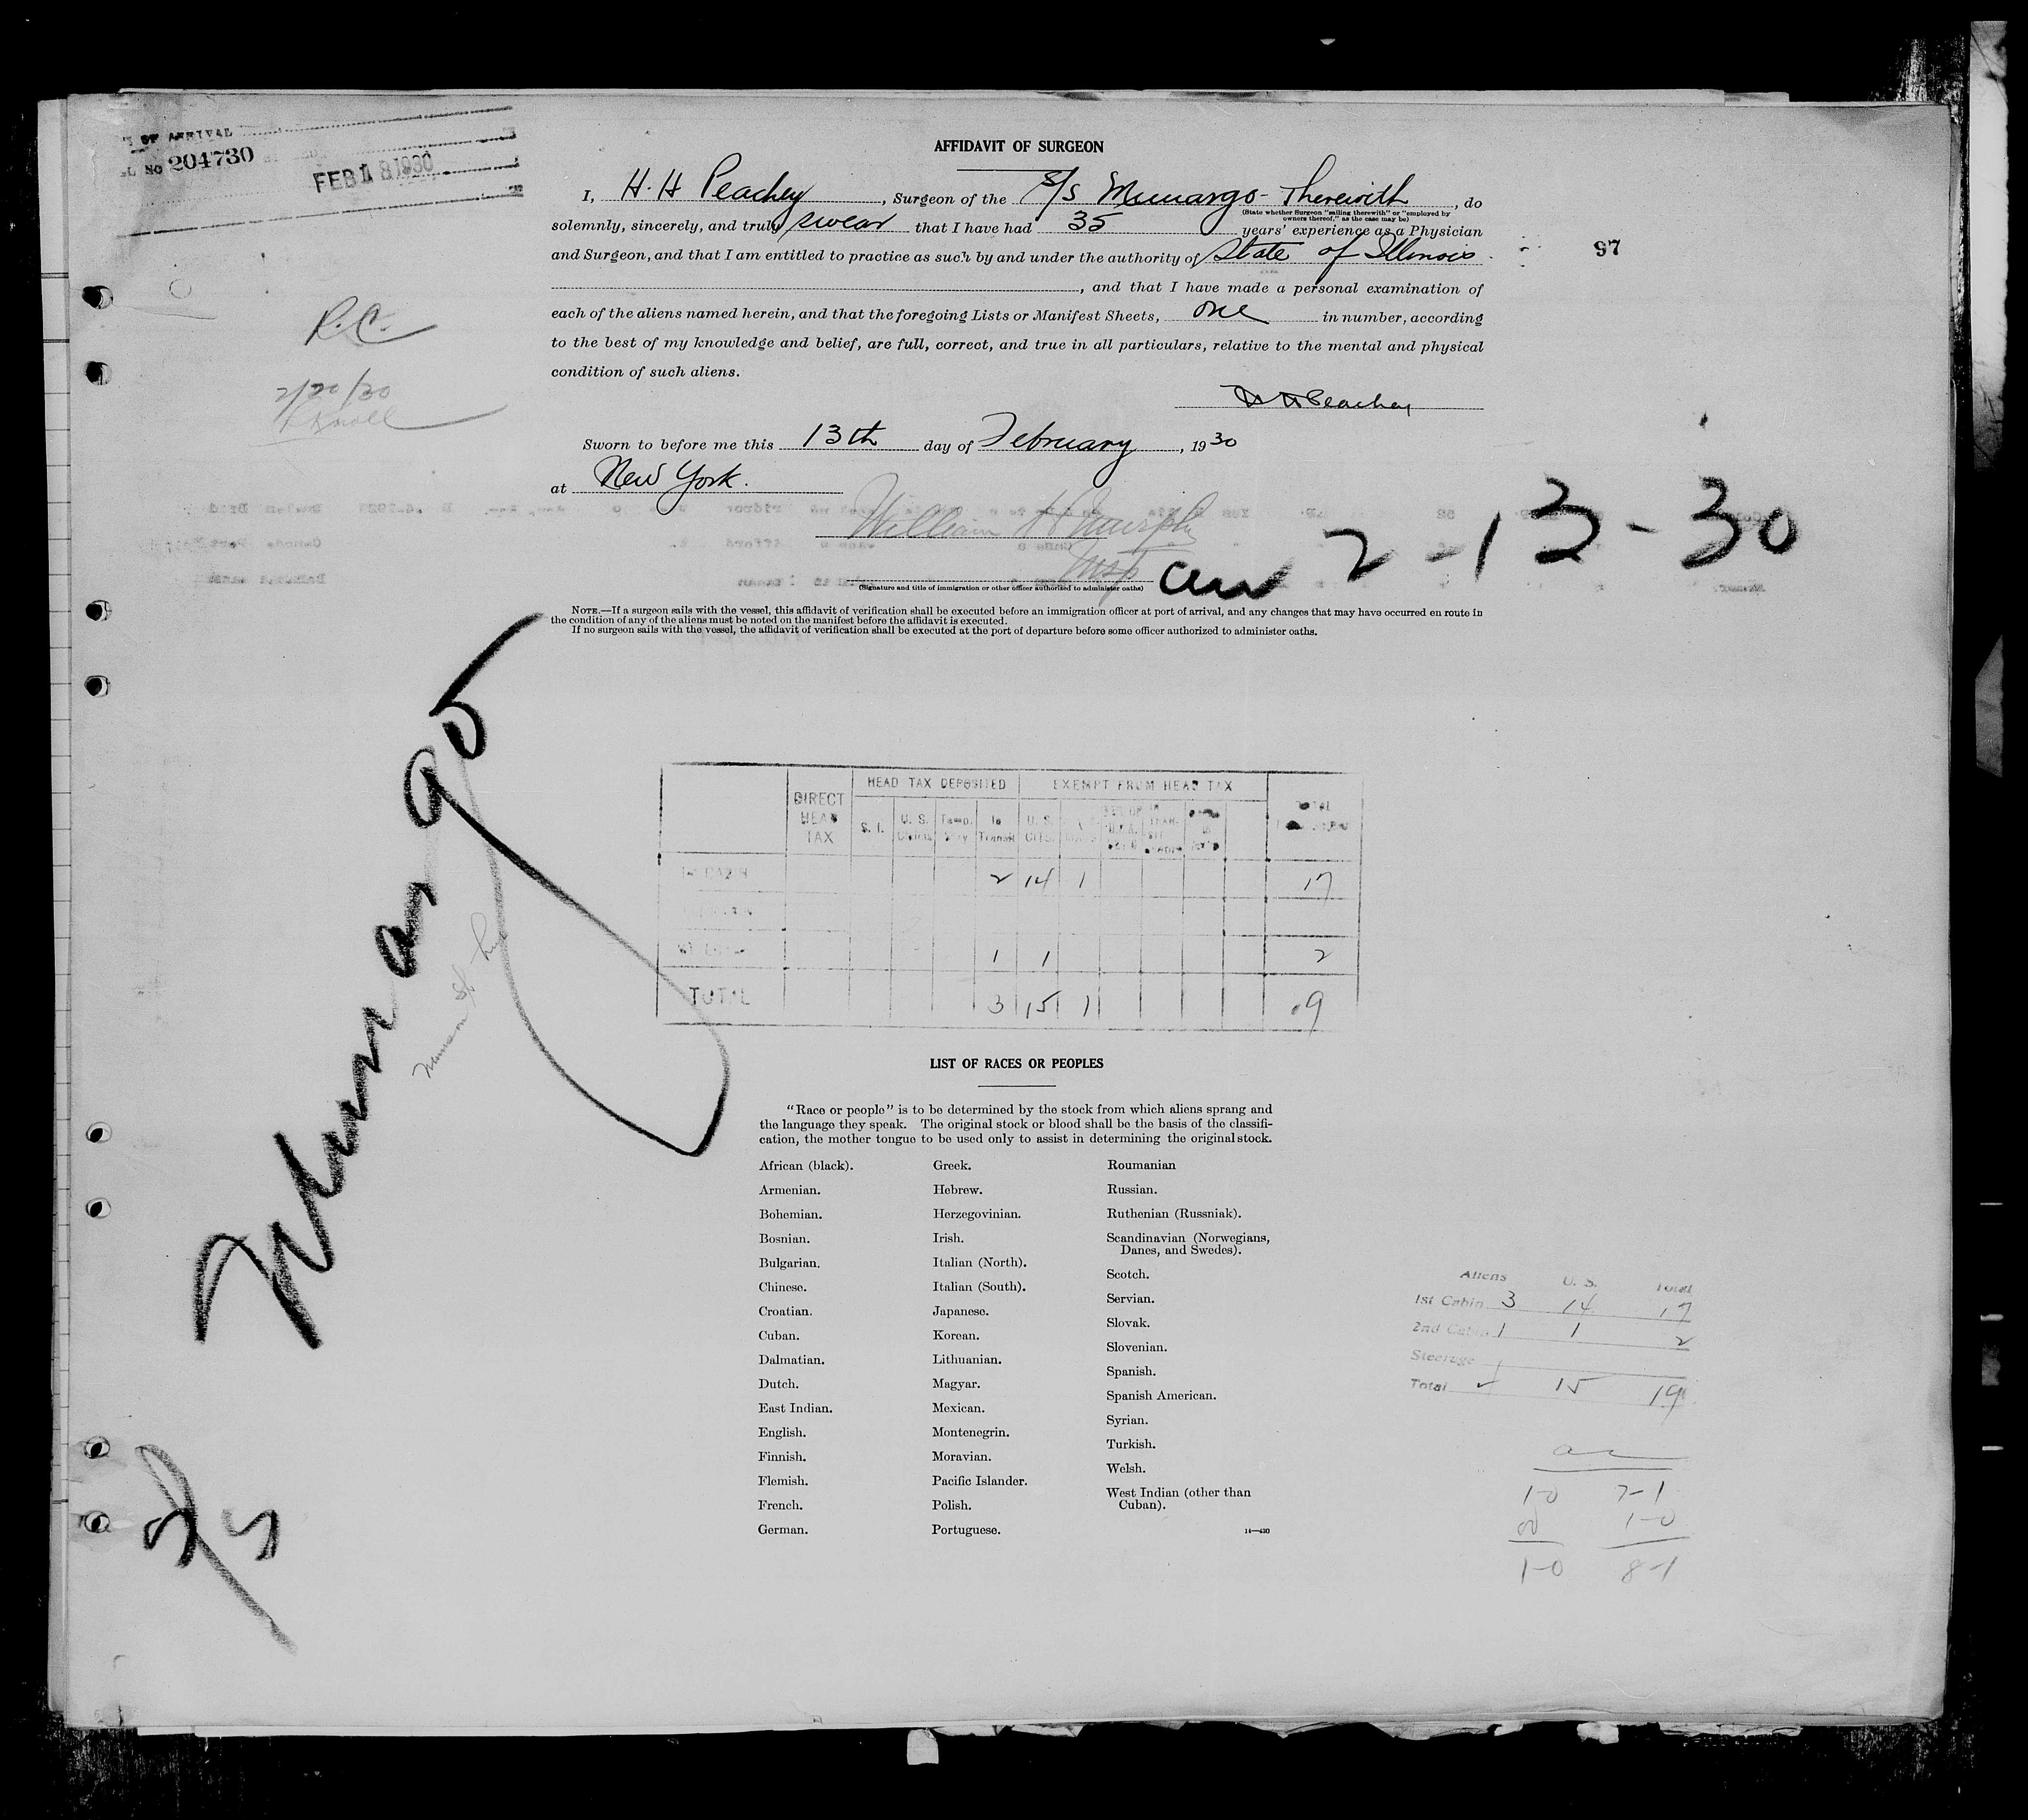 OF ARRIVAL
No 204730
FEB 18 1930
AFFIDAVIT OF SURGEON
I, H. H Peachey, Surgeon of the S/S Munargo - Therewith, do
(State whether Surgeon "sailing therewith" or "employed by
owners thereof," as the case may be)
solemnly, sincerely, and truly swear that I have had 35 years' experience as a Physician
and Surgeon, and that I am entitled to practice as such by and under the authority of State of Illinois
97
, and that I have made a personal examination of
each of the aliens named herein, and that the foregoing Lists or Manifest Sheets, one in number, according
to the best of my knowledge and belief, are full, correct, and true in all particulars, relative to the mental and physical
condition of such aliens.
R.C.
2/20/30
H H Peachey
Sworn to before me this 13th day of February, 1930
at New York.
William H Murphy
Insp
arr 2-13-30
(Signature and title of immigration or other officer authorized to administer oaths)
NOTE.—If a surgeon sails with the vessel, this affidavit of verification shall be executed before an immigration officer at port of arrival, and any changes that may have occurred en route in
the condition of any of the aliens must be noted on the manifest before the affidavit is executed.
If no surgeon sails with the vessel, the affidavit of verification shall be executed at the port of departure before some officer authorized to administer oaths.
Munargo
S/S
HEAD TAX DEPOSITED EXEMPT FROM HEAD TAX
DIRECT HEAD TAX S. I. U. S. Temp. In Transit U. S. CITS. TOTAL
1st CABIN 2 14 1 17
1 1 2
TOTAL 3 15 1 19
LIST OF RACES OR PEOPLES
"Race or people" is to be determined by the stock from which aliens sprang and
the language they speak. The original stock or blood shall be the basis of the classifi-
cation, the mother tongue to be used only to assist in determining the original stock.
African (black).
Armenian.
Bohemian.
Bosnian.
Bulgarian.
Chinese.
Croatian.
Cuban.
Dalmatian.
Dutch.
East Indian.
English.
Finnish.
Flemish.
French.
German.
Greek.
Hebrew.
Herzegovinian.
Irish.
Italian (North).
Italian (South).
Japanese.
Korean.
Lithuanian.
Magyar.
Mexican.
Montenegrin.
Moravian.
Pacific Islander.
Polish.
Portuguese.
Roumanian
Russian.
Ruthenian (Russniak).
Scandinavian (Norwegians,
Danes, and Swedes).
Scotch.
Servian.
Slovak.
Slovenian.
Spanish.
Spanish American.
Syrian.
Turkish.
Welsh.
West Indian (other than
Cuban).
14—430
Aliens U. S. Total
1st Cabin 3 14 17
2nd Cabin 1 1 2
Steerage
Total 4 15 19
1-0 7-1
1-0
1-0 8-1